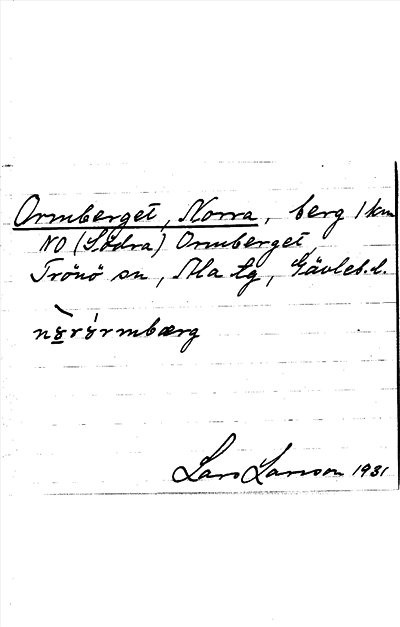 Ormberget, Norra, berg 1 km
NO (Södra) Ormberget,
Trönö sn, Ala tg, Gävleb. l.
Lars Larsson 1931